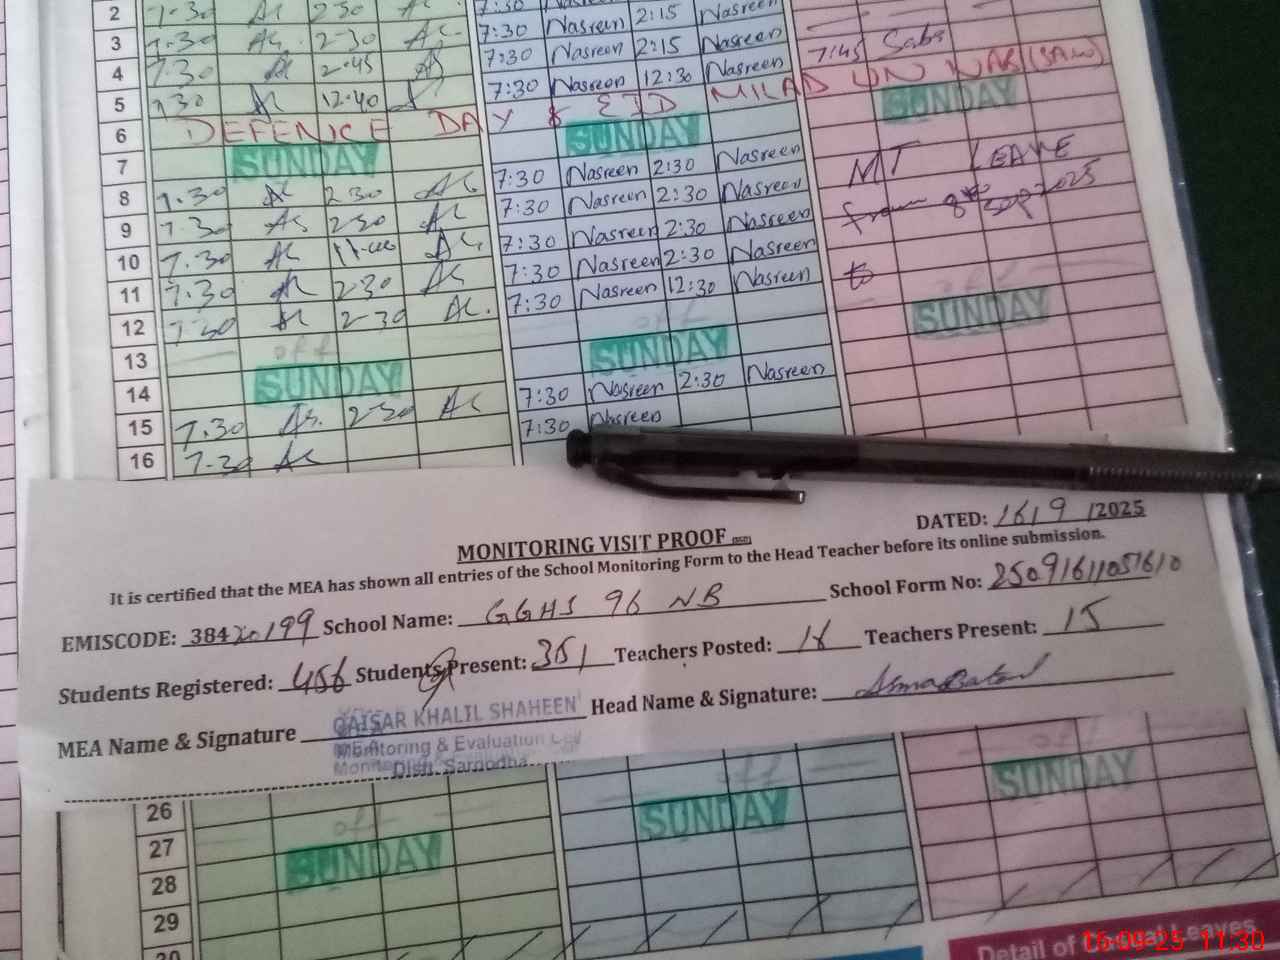 2 7:30 Ac 2:30 Ac 7:30 Nasreen 2:15 Nasreen
3 7.30 As. 2-30 Ac. 7:30 Nasreen 2:15 Nasreen 7:45 Saba
4 7.30 2.45 7:30 Nasreen 12:30 Nasreen
5 7.30 12.40
6 DEFENCE DAY & EID MILAD UN NABI (SAW)
7 SUNDAY SUNDAY SUNDAY
8 7.30 Ac 2.30 Ac 7:30 Nasreen 2:30 Nasreen MT LEAVE
9 7.30 As 2-30 Ac 7:30 Nasreen 2:30 Nasreen from 8th Sep 2025
10 7.30 Ac 11-00 Ac. 7:30 Nasreen 2:30 Nasreen
11 7.30 Ac 2-30 Ac 7:30 Nasreen 2:30 Nasreen to
12 7.30 Ac 2-30 Ac. 7:30 Nasreen 12:30 Nasreen
13 off off off
14 SUNDAY SUNDAY SUNDAY
15 7.30 As. 2-30 Ac 7:30 Nasreen 2:30 Nasreen
16 7-30 Ac 7:30 Nasreen
DATED: 16/9/2025
MONITORING VISIT PROOF
It is certified that the MEA has shown all entries of the School Monitoring Form to the Head Teacher before its online submission.
EMISCODE: 38420199 School Name: GGHS 96 NB School Form No: 25091611051610
Students Registered: 456 Students Present: 351 Teachers Posted: 18 Teachers Present: 15
MEA Name & Signature QAISAR KHALIL SHAHEEN Head Name & Signature: Asma Batool
Monitoring & Evaluation
Distt. Sargodha
26
27 off off off
28 SUNDAY SUNDAY SUNDAY
29
30
Detail of Casual Leaves
16-09-25 11:30